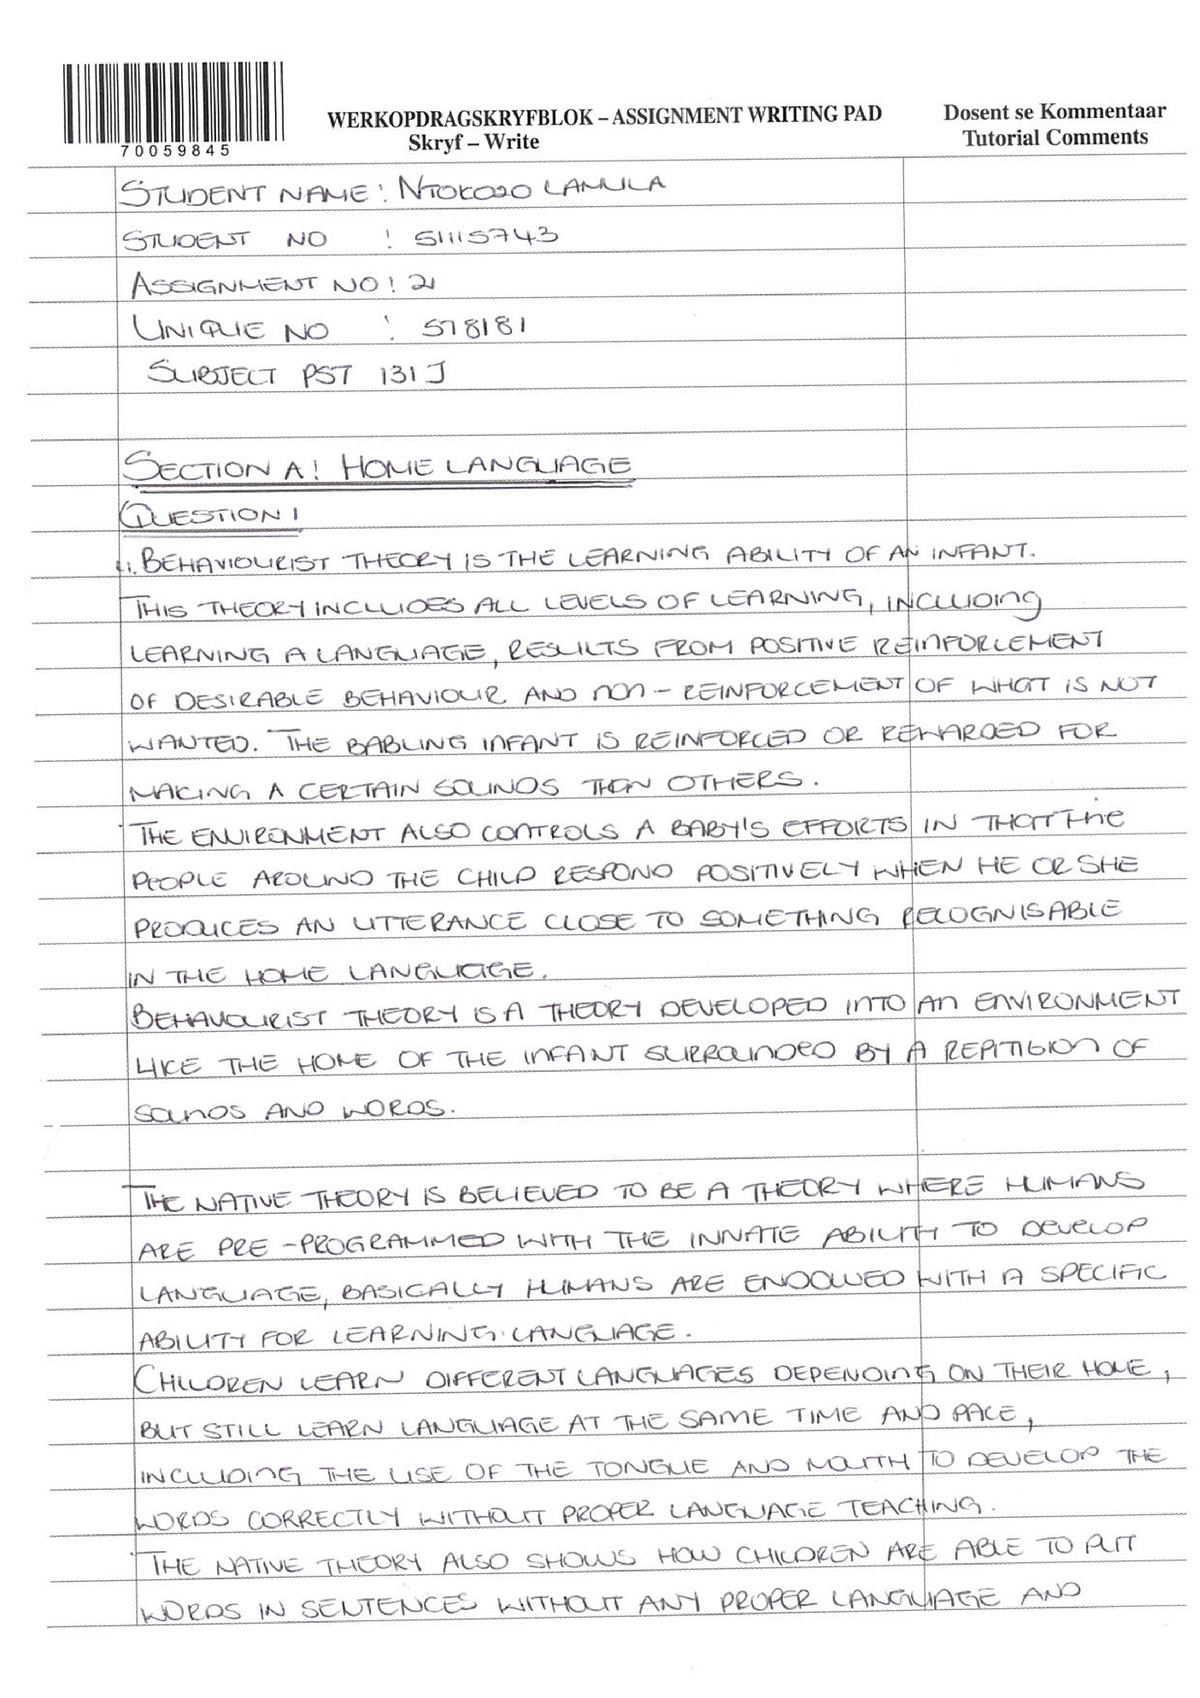 70059845
WERKOPDRAGSKRYFBLOK – ASSIGNMENT WRITING PAD
Skryf – Write
Dosent se Kommentaar
Tutorial Comments
STUDENT NAME: NTOKOZO LAMULA
STUDENT NO : 51115743
ASSIGNMENT NO: 21
UNIQUE NO : 578181
SUBJECT PST 131 J
SECTION A: HOME LANGUAGE
QUESTION 1
1.1. BEHAVIOURIST THEORY IS THE LEARNING ABILITY OF AN INFANT.
THIS THEORY INCLUDES ALL LEVELS OF LEARNING, INCLUDING
LEARNING A LANGUAGE, RESULTS FROM POSITIVE REINFORCEMENT
OF DESIRABLE BEHAVIOUR AND NON-REINFORCEMENT OF WHAT IS NOT
WANTED. THE BABLING INFANT IS REINFORCED OR REWARDED FOR
MAKING A CERTAIN SOUNDS THAN OTHERS.
THE ENVIRONMENT ALSO CONTROLS A BABY'S EFFORTS IN THAT THE
PEOPLE AROUND THE CHILD RESPOND POSITIVELY WHEN HE OR SHE
PRODUCES AN UTTERANCE CLOSE TO SOMETHING RECOGNISABLE
IN THE HOME LANGUAGE.
BEHAVOURIST THEORY IS A THEORY DEVELOPED INTO AN ENVIRONMENT
LIKE THE HOME OF THE INFANT SURROUNDED BY A REPITIGION OF
SOUNDS AND WORDS.
THE NATIVE THEORY IS BELIEVED TO BE A THEORY WHERE HUMANS
ARE PRE-PROGRAMMED WITH THE INNATE ABILITY TO DEVELOP
LANGUAGE, BASICALLY HUMANS ARE ENDOWED WITH A SPECIFIC
ABILITY FOR LEARNING LANGUAGE.
CHILDREN LEARN DIFFERENT LANGUAGES DEPENDING ON THEIR HOME,
BUT STILL LEARN LANGUAGE AT THE SAME TIME AND PACE,
INCLUDING THE USE OF THE TONGUE AND MOUTH TO DEVELOP THE
WORDS CORRECTLY WITHOUT PROPER LANGUAGE TEACHING.
THE NATIVE THEORY ALSO SHOWS HOW CHILDREN ARE ABLE TO PUT
WORDS IN SENTENCES WITHOUT ANY PROPER LANGUAGE AND